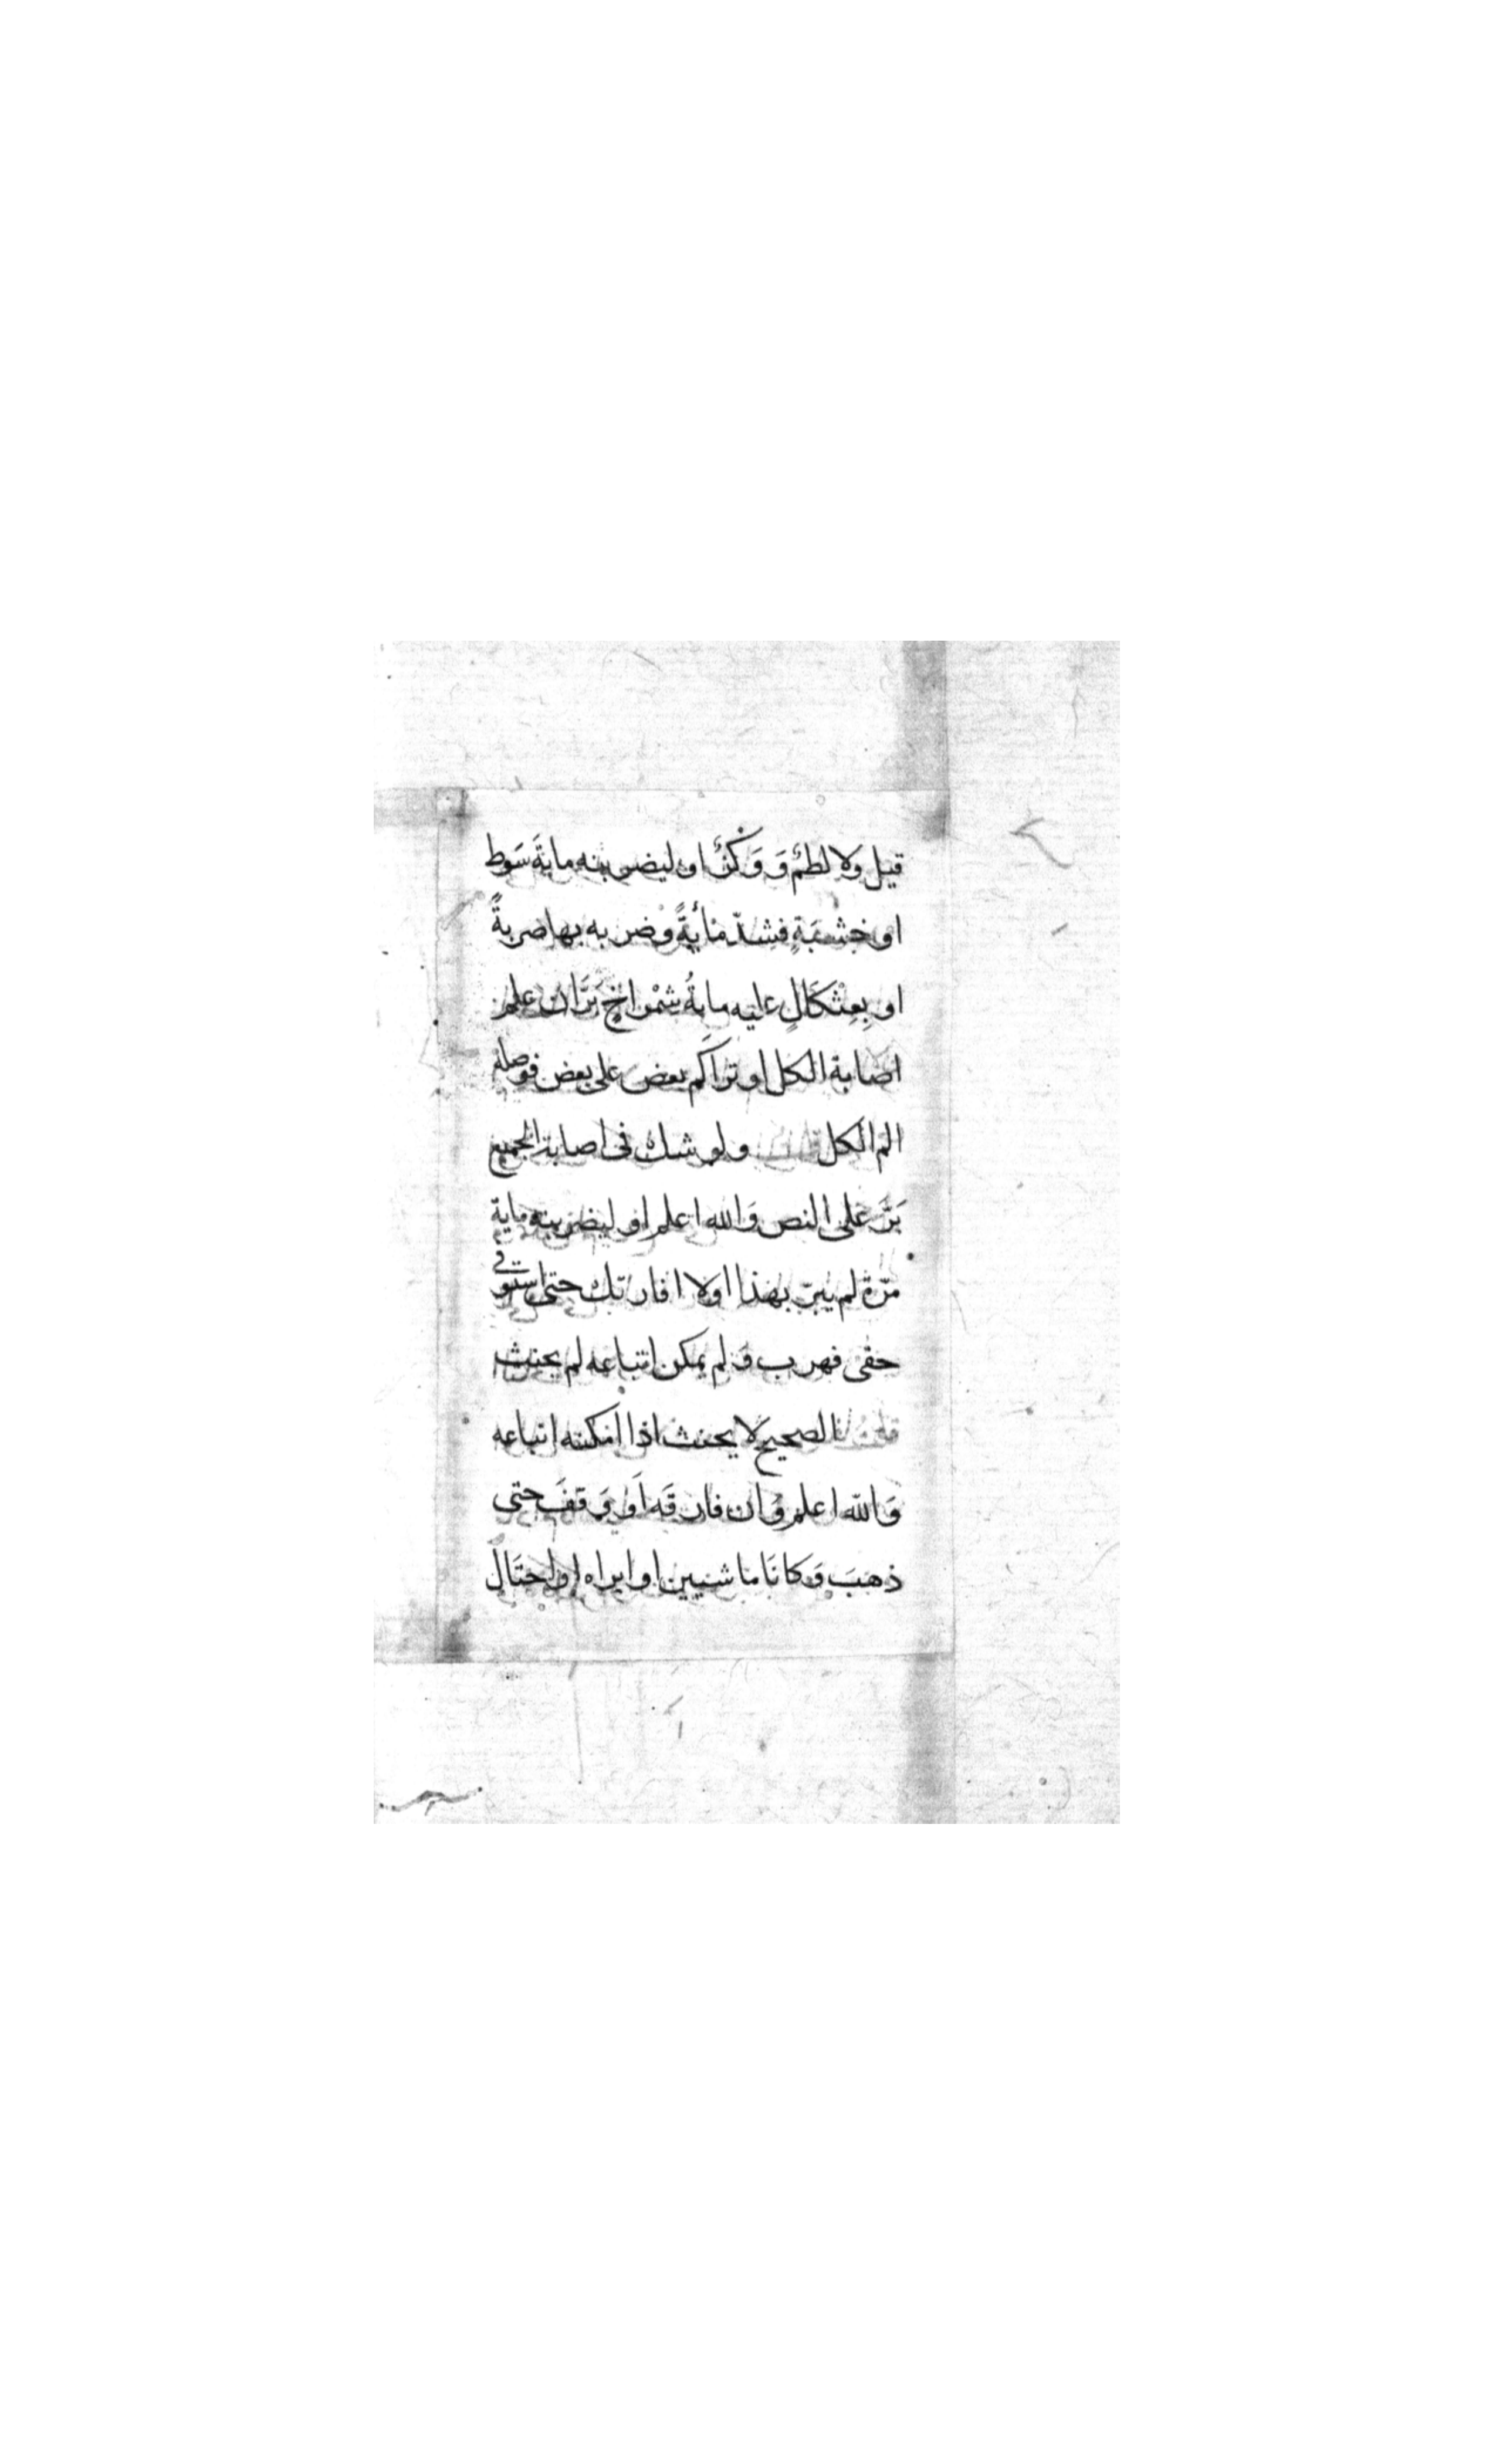 قيل ولا لطمٌ وَوَكْزٌ او ليضربنه مايةَ سَوط
او خشبَةٍ فشدّ مائةً وضربه بها ضربةً
او بِعِثْكَالٍ عليه مايةُ شمْراخٍ بَرَّ ان علم
اصابة الكل او تراكم بعض على بعض فوصله
الم الكل قلت ولو شك في اصابة الجميع
بَرَّ على النص وَالله اعلم او ليضربنه ماية
مَرّة لم يبرّ بهذا او لا افارقك حتى استوفي
حقي فهرب وَلم يمكن اتباعه لم يحنث
قلت الصحيح لا يحنث اذا امكنه اتباعه
وَالله اعلم وَان فارقَه اَو وَقفَ حتى
ذهبَ وَكانَا ماشيين او ابراه او احتَال